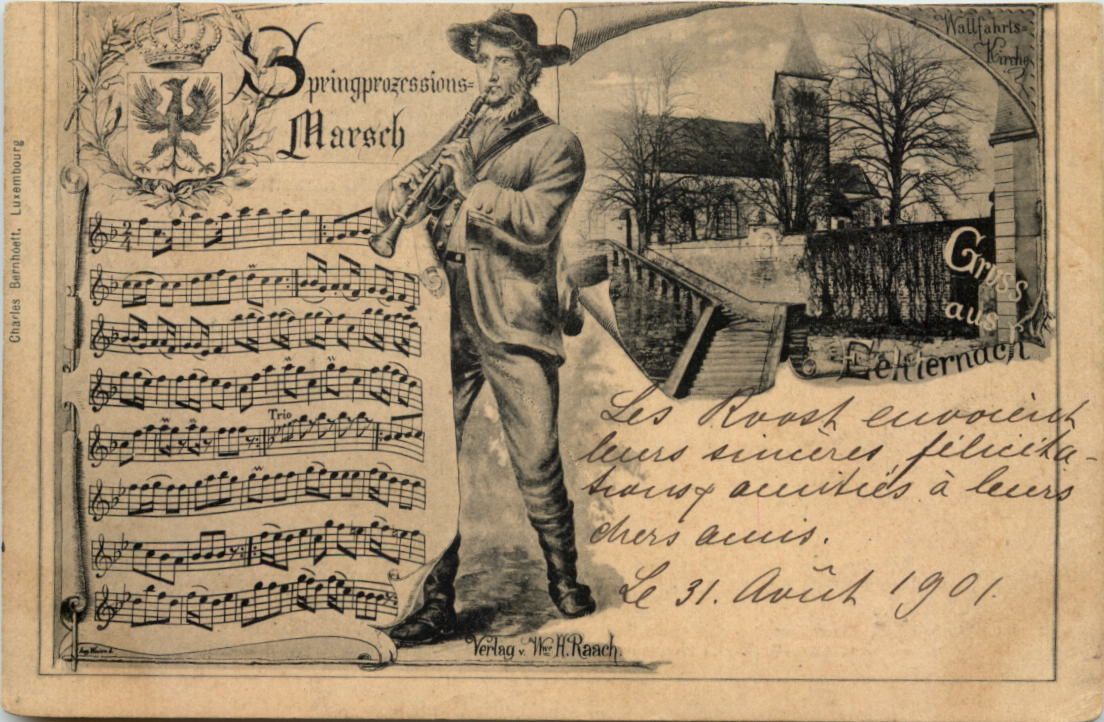 Charles Bernhoeft, Luxembourg
Springprozessions=
Marsch
Wallfahrts=
Kirche
Gruss
aus
Echternach
Trio
Les Roost envoient
leurs sincères félicita-
tions & amitiés à leurs
chers amis.
Le 31. Août 1901.
Verlag v. Wwe H. Raach.